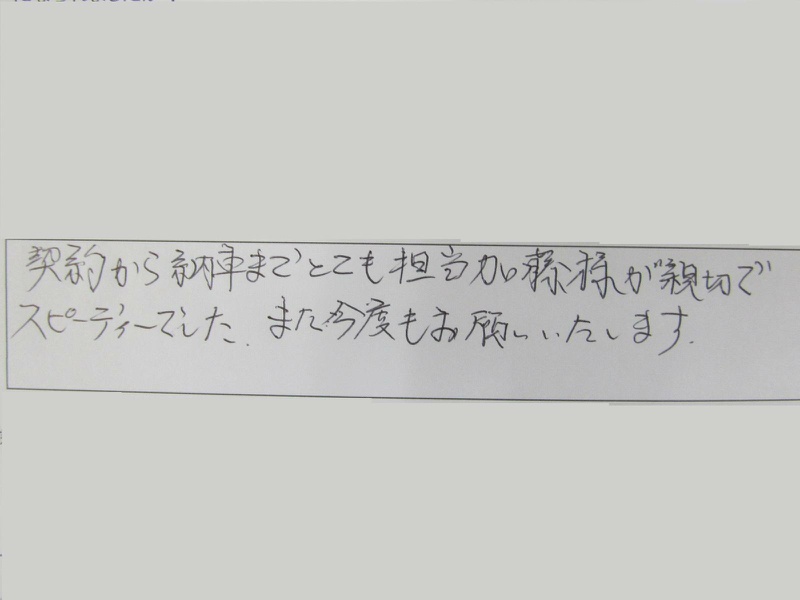 契約から納車までとても担当加藤様が親切で
スピーディーでした. また今度もお願いいたします.